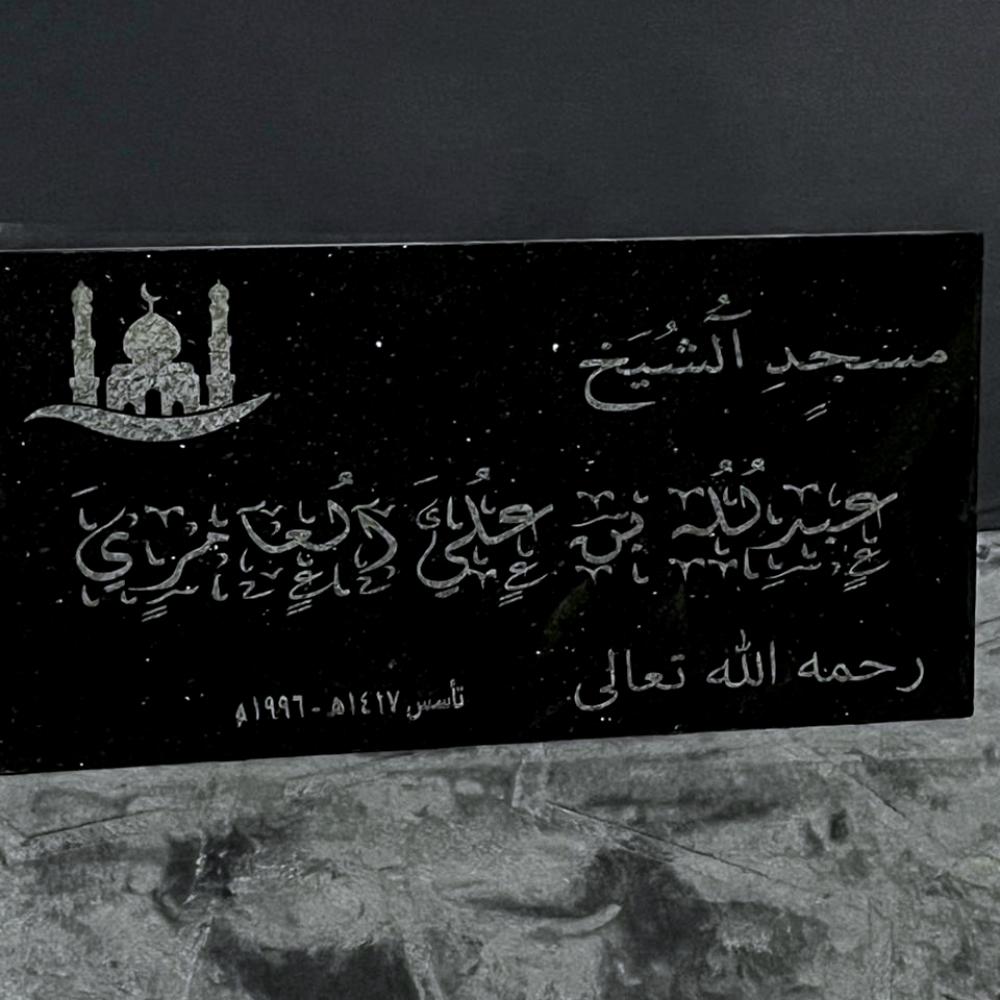 مسجد الشيخ
عبدالله بن علي العامري
رحمه الله تعالى
تأسس ١٤١٧هـ - ١٩٩٦م